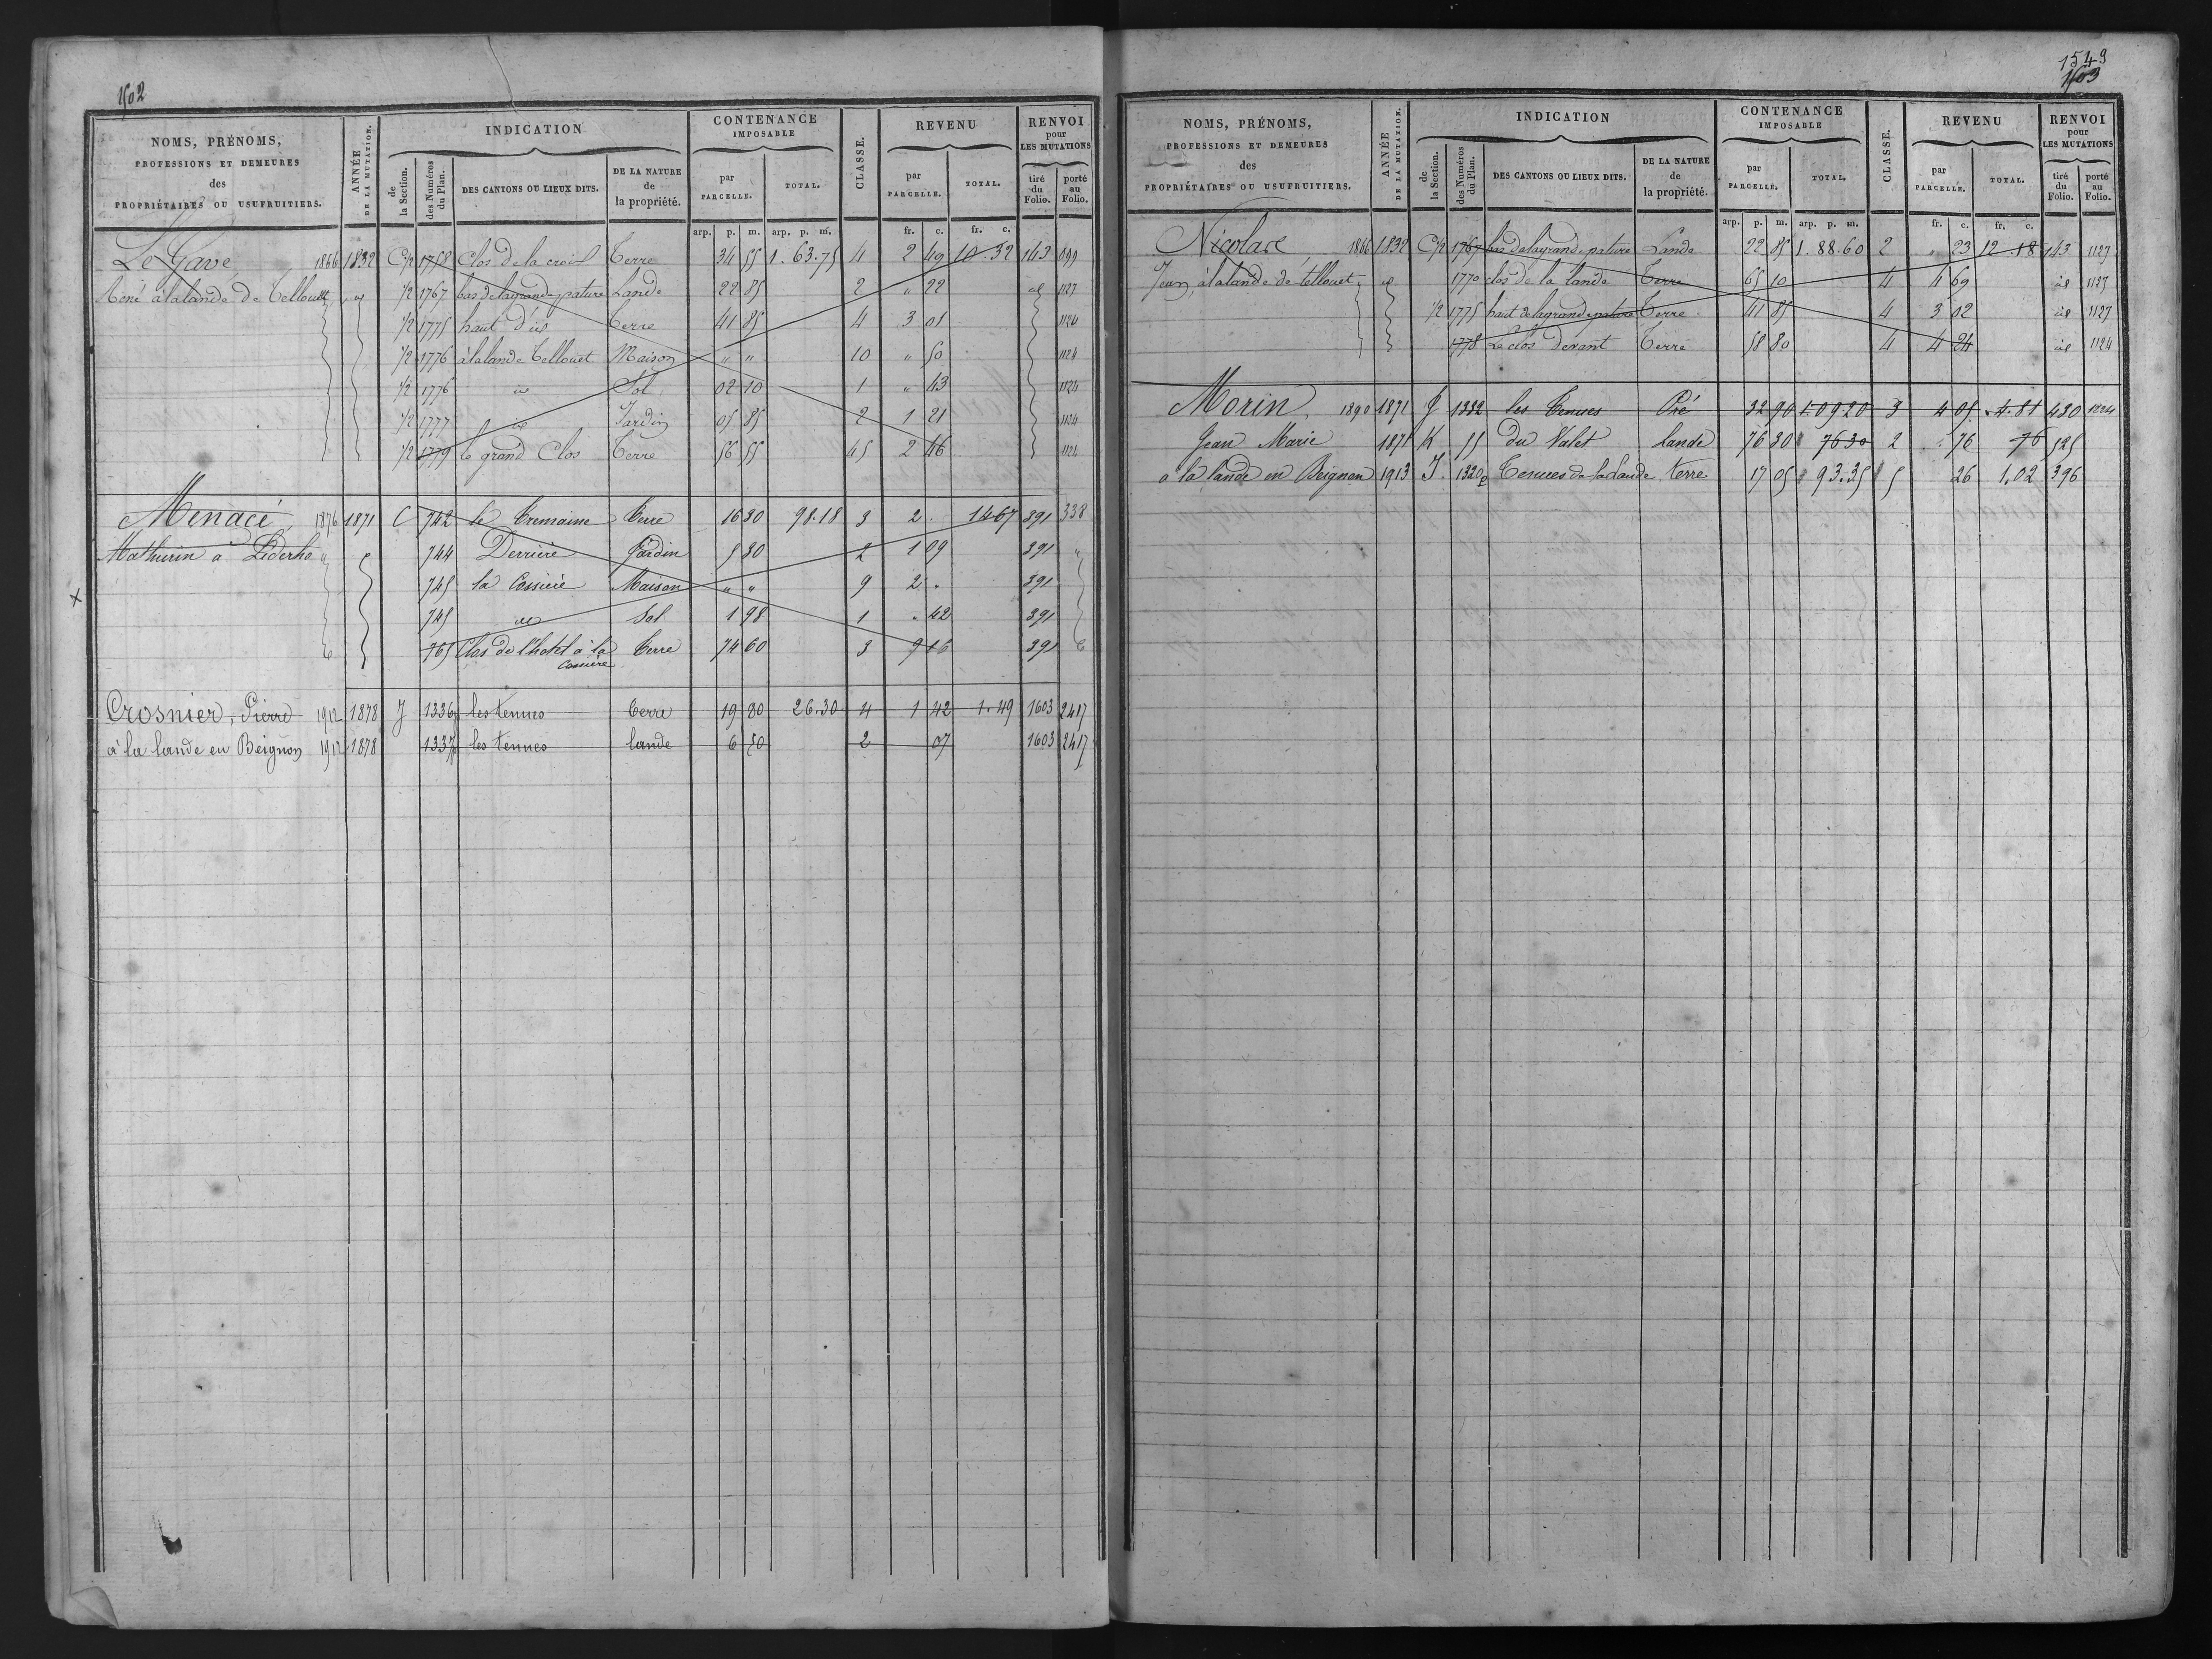 1502
NOMS, PRÉNOMS, PROFESSIONS ET DEMEURES des PROPRIÉTAIRES OU USUFRUITIERS.
ANNÉE DE LA MUTATION.
INDICATION
de la Section.
des Numéros du Plan.
DES CANTONS OU LIEUX DITS.
DE LA NATURE de la propriété.
CONTENANCE IMPOSABLE
par PARCELLE.
TOTAL.
CLASSE.
REVENU
par PARCELLE.
TOTAL.
RENVOI pour LES MUTATIONS
tiré du Folio.
porté au Folio.
arp. p. m. arp. p. m. fr. c. fr. c.
Le Gave 1866 1832 C 1/2 1758 Clos de la croix Terre 34 55 1. 63. 75 4 2 49 10. 32 143
René à la lande de Tellouet id 1/2 1767 bas de la grande pature Lande 22 85 2 " 22 id 1127
1/2 1775 haut d'is Terre 41 85 4 3 01 1124
1/2 1776 à la lande Tellouet Maison " " 10 " 50 1124
1/2 1776 id Sol 02 10 1 " 43 1124
1/2 1777 id Jardin 05 85 2 1 21 1124
1/2 1779 le grand Clos Terre 56 55 45 2 46 1124
Menacé 1876 1871 C 742 le Tremaine Terre 16 30 98. 18 3 2 . 14 67 391 338
Mathurin à Liderho " 744 Derrière Jardin 5 30 2 1 09 391 "
745 la Cossière Maison " " 9 2 . 391
745 id Sol 1 98 1 . 42 391
765 Clos de l'hotel à la Cossière Terre 74 60 3 9 16 391
Crosnier, Pierre 1912 1878 J 1336p les tenues terre 19 80 26. 30 4 1 42 1. 49 1603 2417
à la lande en Beignon 1912 1878 1337p les tenues lande 6 50 2 07 1603 2417
1549
1503
NOMS, PRÉNOMS, PROFESSIONS ET DEMEURES des PROPRIÉTAIRES OU USUFRUITIERS.
ANNÉE DE LA MUTATION.
INDICATION
de la Section.
des Numéros du Plan.
DES CANTONS OU LIEUX DITS.
DE LA NATURE de la propriété.
CONTENANCE IMPOSABLE
par PARCELLE.
TOTAL.
CLASSE.
REVENU
par PARCELLE.
TOTAL.
RENVOI pour LES MUTATIONS
tiré du Folio.
porté au Folio.
arp. p. m. arp. p. m. fr. c. fr. c.
Nicolace 1866 1832 C 1/2 1767 bas de la grande pature Lande 22 85 1. 88. 60 2 " 23 12 18 143 1127
Jean, à la lande de tellouet id 1770 clos de la lande Terre 65 10 4 4 69 id 1127
1/2 1775 haut de la grande pature Terre 41 85 4 3 02 id 1127
1778 Le clos devant Terre 58 80 4 4 24 id 1124
Morin, 1890 1871 J 1332 les Tenues Pré 32 90 1. 09 20 3 4 05 4. 81 430 1224
Jean Marie 1871 K 55 du Valet lande 76 30 76 30 2 . 76 76 525
a la lande en Beignon 1913 J 1320p Tenues de la lande terre 17 05 93. 35 5 26 1.02 396